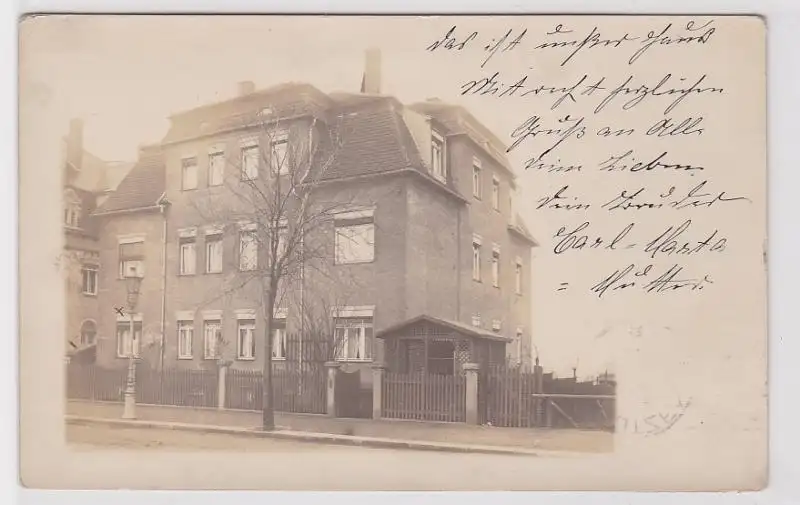 das ist unser Haus
Mit recht herzlichen
Gruß an All.
dein Lieben
dein Bruder
Carl = Marta
= Mutter.